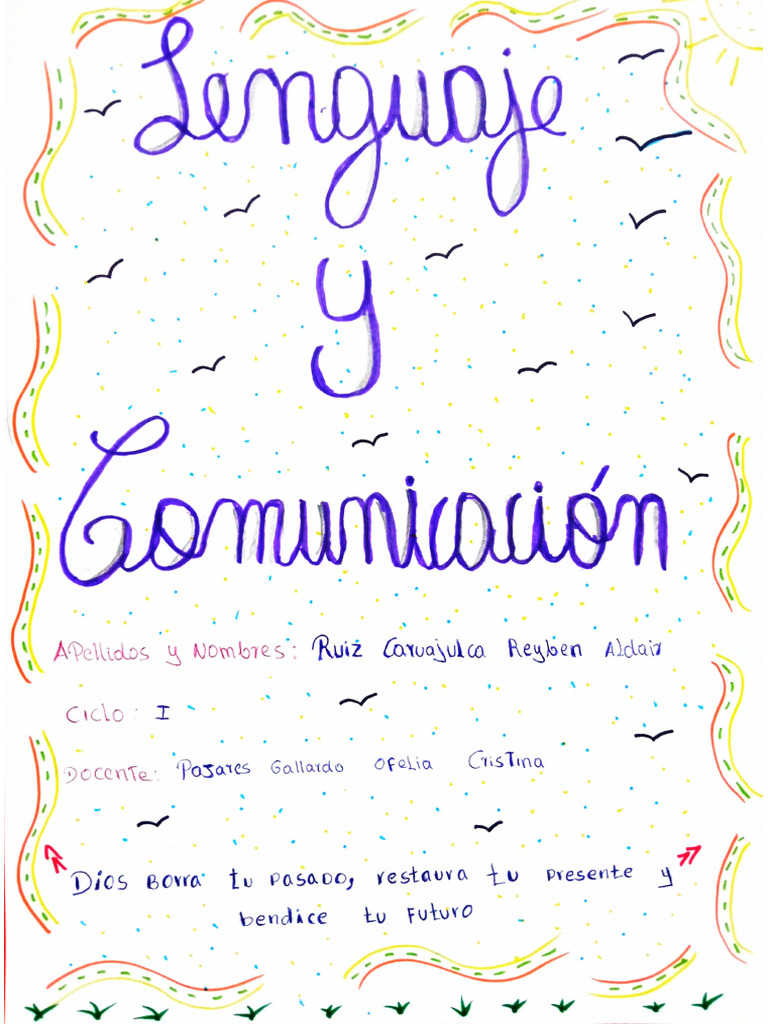 Lenguaje
y
Comunicación
Apellidos y Nombres: Ruiz Caruajulca Reyben Aldair
Ciclo: I
Docente: Pajares Gallardo Ofelia Cristina
Dios Borra tu pasado, restaura tu presente y
bendice tu Futuro